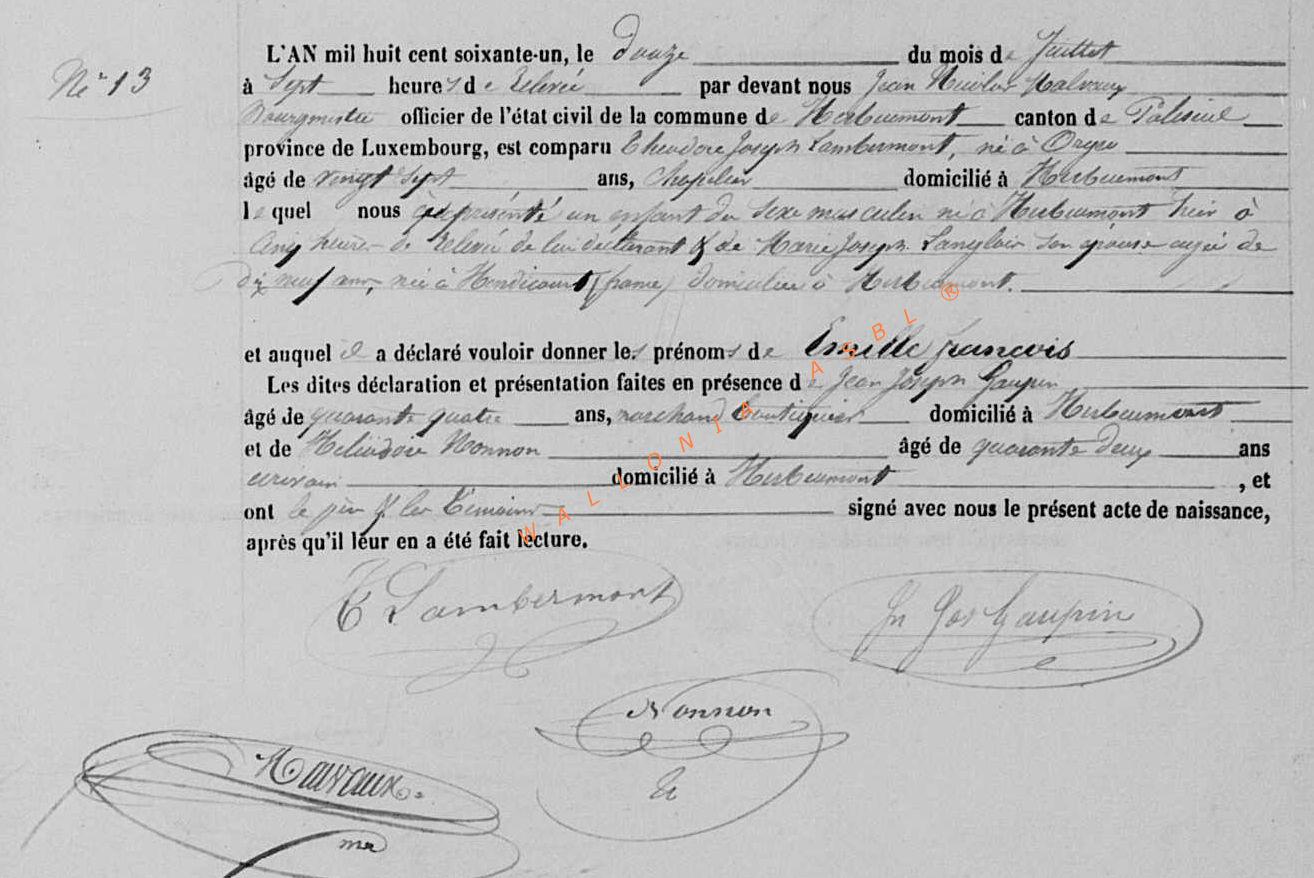 N° 13
L'AN mil huit cent soixante-un, le douze du mois de Juillet
à sept heures de relevée par devant nous Jean Nicolas Malvaux
Bourgmestre officier de l'état civil de la commune de Herbeumont canton de Paliseul
province de Luxembourg, est comparu Theodore Joseph Lambermont, né à Orgeo
âgé de vingt sept ans, Chapelier domicilié à Herbeumont
lequel nous a présenté un enfant du sexe masculin né à Herbeumont hier à
cinq heures de relevée de lui déclarant & de Marie Joseph Langlois son épouse agée de
dix neuf ans, née à (france) domiciliée à Herbeumont.
et auquel il a déclaré vouloir donner les prénoms de Emille françois
Les dites déclaration et présentation faites en présence de Jean Joseph Gaupin
âgé de quarante quatre ans, marchand boutiquier domicilié à Herbeumont
et de Heliodore Nonnon âgé de quarante deux ans
écrivain domicilié à Herbeumont, et
ont le père & les témoins signé avec nous le présent acte de naissance,
après qu'il leur en a été fait lecture.
T Lambermont
Jn Jos Gaupin
Nonnon
Malvaux
WALLONIA ASBL ®